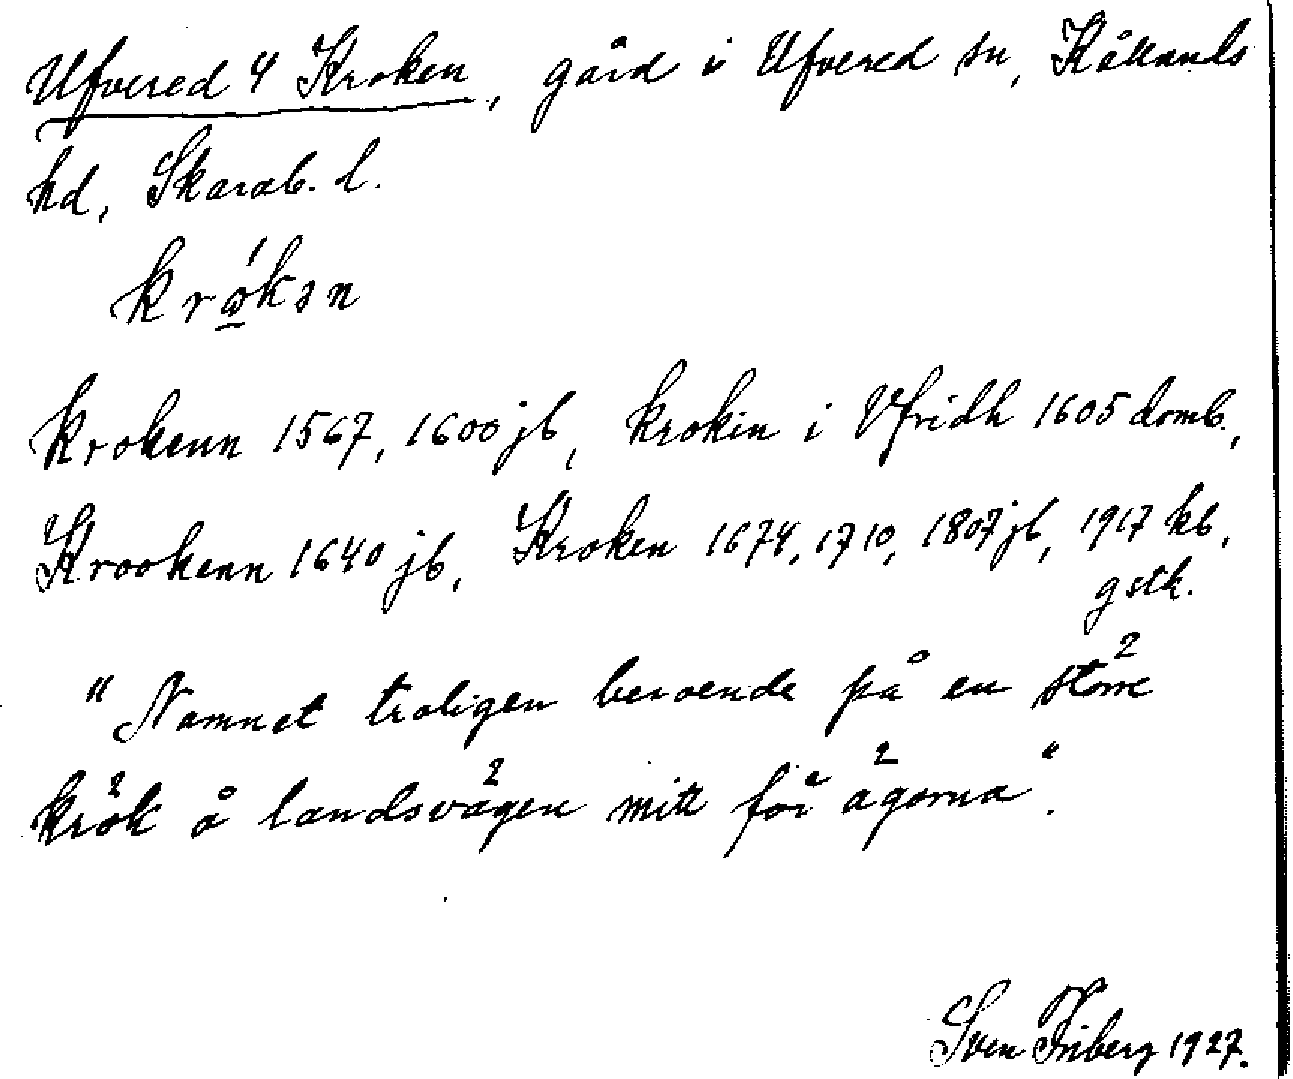 Ufvered 4 Kroken, gård i Ufvered sn, Kållands
hd, Skarab. l.
krókən
Krokenn 1567, 1600 jb, Krokin i Vfridh 1605 domb.,
Krookenn 1640 jb, Kroken 1674, 1710, 1807 jb, 1917 kb,
gstk.
"Namnet troligen beroende på en större
krök å landsvägen mitt för ägorna".
Sven Friberg 1927.